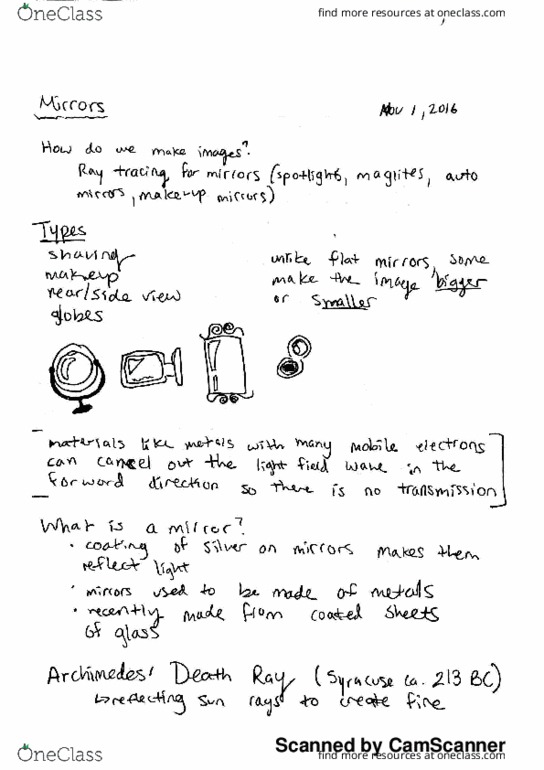 OneClass
find more resources at oneclass.com
Mirrors
Nov 1, 2016
How do we make images?
Ray tracing for mirrors (spotlights, maglites, auto
mirros, make-up mirrors)
Types
shaving
makeup
rear/side view
globes
unlike flat mirrors, some
make the image bigger
or smaller
materials like metals with many mobile electrons
can cancel out the light field wave in the
forward direction so there is no transmission
What is a mirror?
• coating of silver on mirrors makes them
reflect light
• mirrors used to be made of metals
• recently made from coated sheets
of glass
Archimedes' Death Ray (Syracuse ca. 213 BC)
↳ reflecting sun rays to create fire
Scanned by CamScanner
OneClass
find more resources at oneclass.com